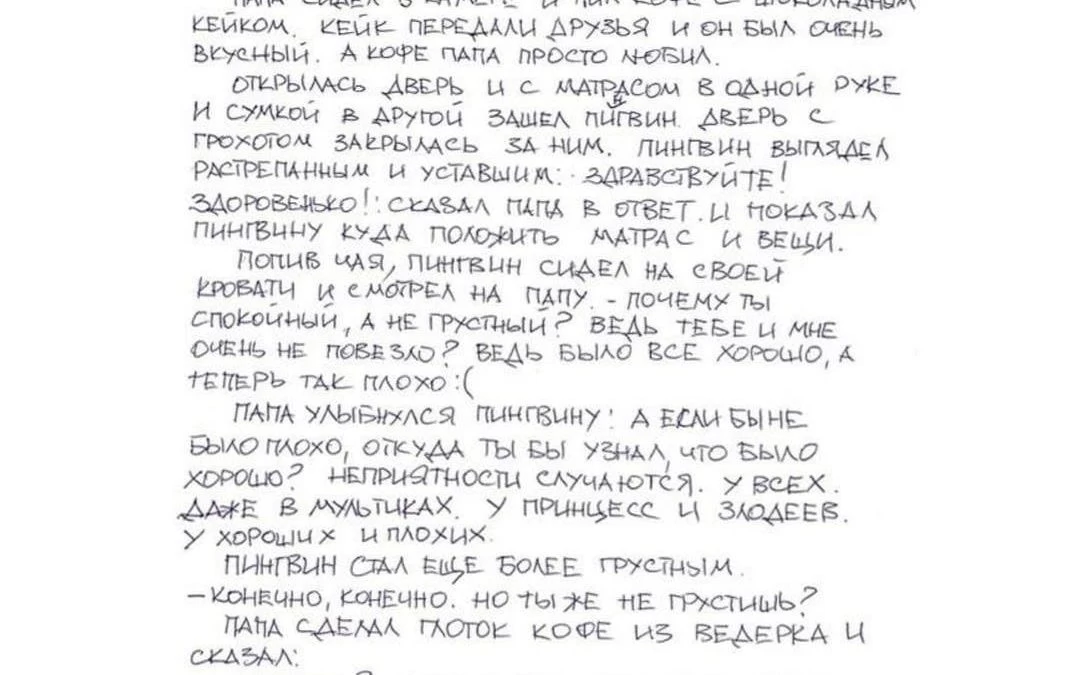 ПАПА СИДЕЛ В КАМЕРЕ И ПИЛ КОФЕ С ШОКОЛАДНЫМ
КЕЙКОМ. КЕЙК ПЕРЕДАЛИ ДРУЗЬЯ И ОН БЫЛ ОЧЕНЬ
ВКУСНЫЙ. А КОФЕ ПАПА ПРОСТО ЛЮБИЛ.
ОТКРЫЛАСЬ ДВЕРЬ И С МАТРАСОМ В ОДНОЙ РУКЕ
И СУМКОЙ В ДРУГОЙ ЗАШЕЛ ПИНГВИН. ДВЕРЬ С
ГРОХОТОМ ЗАКРЫЛАСЬ ЗА НИМ. ПИНГВИН ВЫГЛЯДЕЛ
РАСТРЕПАННЫМ И УСТАВШИМ: ЗДРАВСТВУЙТЕ!
ЗДОРОВЕНЬКО!: СКАЗАЛ ПАПА В ОТВЕТ. И ПОКАЗАЛ
ПИНГВИНУ КУДА ПОЛОЖИТЬ МАТРАС И ВЕЩИ.
ПОПИВ ЧАЯ, ПИНГВИН СИДЕЛ НА СВОЕЙ
КРОВАТИ И СМОТРЕЛ НА ПАПУ. - ПОЧЕМУ ТЫ
СПОКОЙНЫЙ, А НЕ ГРУСТНЫЙ? ВЕДЬ ТЕБЕ И МНЕ
ОЧЕНЬ НЕ ПОВЕЗЛО? ВЕДЬ БЫЛО ВСЕ ХОРОШО, А
ТЕПЕРЬ ТАК ПЛОХО :(
ПАПА УЛЫБНУЛСЯ ПИНГВИНУ: А ЕСЛИ БЫ НЕ
БЫЛО ПЛОХО, ОТКУДА ТЫ БЫ УЗНАЛ, ЧТО БЫЛО
ХОРОШО? НЕПРИЯТНОСТИ СЛУЧАЮТСЯ. У ВСЕХ.
ДАЖЕ В МУЛЬТИКАХ. У ПРИНЦЕСС И ЗЛОДЕЕВ.
У ХОРОШИХ И ПЛОХИХ.
ПИНГВИН СТАЛ ЕЩЕ БОЛЕЕ ГРУСТНЫМ.
- КОНЕЧНО, КОНЕЧНО. НО ТЫ ЖЕ НЕ ГРУСТИШЬ?
ПАПА СДЕЛАЛ ГЛОТОК КОФЕ ИЗ ВЕДЕРКА И
СКАЗАЛ: